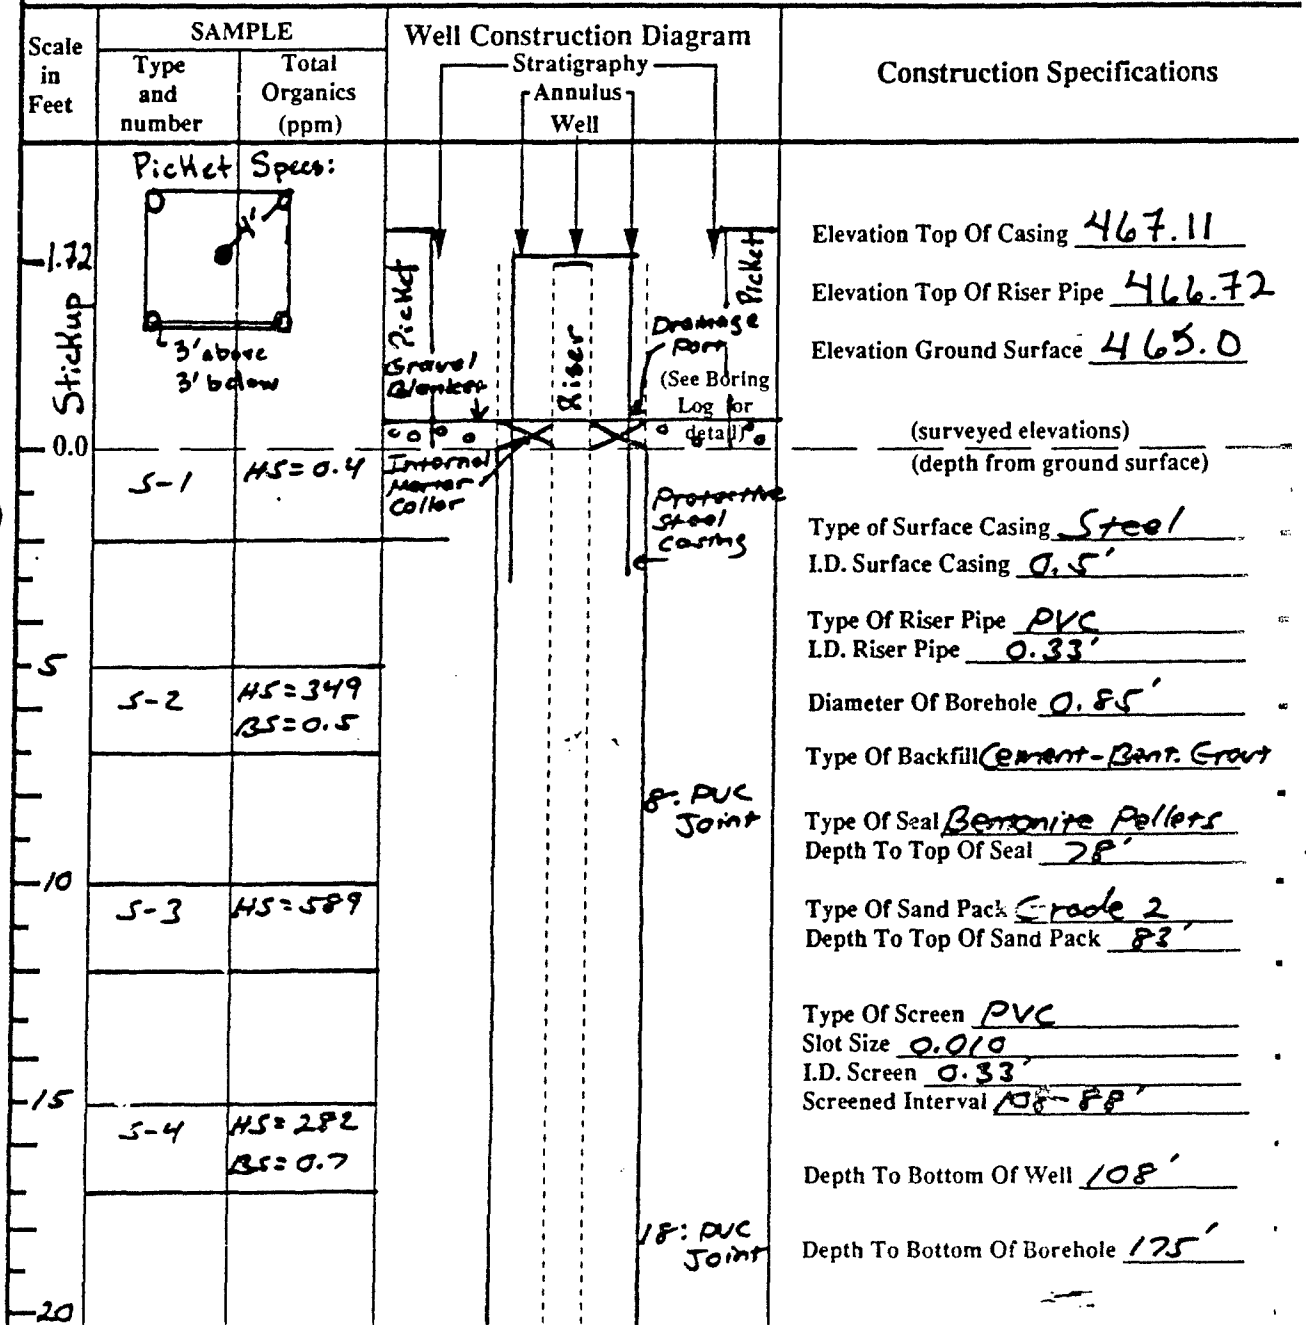 Scale
in
Feet
SAMPLE
Type
and
number
Total
Organics
(ppm)
Well Construction Diagram
Stratigraphy
Annulus
Well
Construction Specifications
Picket Specs:
4'
3' above
3' below
1.72
Stickup
0.0
5
10
15
20
S-1
HS=0.4
S-2
HS=349
BS=0.5
S-3
HS=589
S-4
HS=282
BS=0.7
Picket
Picket
Riser
Gravel
Blanket
Drainage
Port
(See Boring
Log for
detail)
Internal
Mortar
Collar
Protective
Steel
Casing
8: PVC
Joint
18: PVC
Joint
Elevation Top Of Casing 467.11
Elevation Top Of Riser Pipe 466.72
Elevation Ground Surface 465.0
(surveyed elevations)
(depth from ground surface)
Type of Surface Casing Steel
I.D. Surface Casing 0.5'
Type Of Riser Pipe PVC
I.D. Riser Pipe 0.33'
Diameter Of Borehole 0.85'
Type Of Backfill Cement-Bent. Grout
Type Of Seal Bentonite Pellets
Depth To Top Of Seal 78'
Type Of Sand Pack Grade 2
Depth To Top Of Sand Pack 83'
Type Of Screen PVC
Slot Size 0.010
I.D. Screen 0.33'
Screened Interval 108-88'
Depth To Bottom Of Well 108'
Depth To Bottom Of Borehole 175'